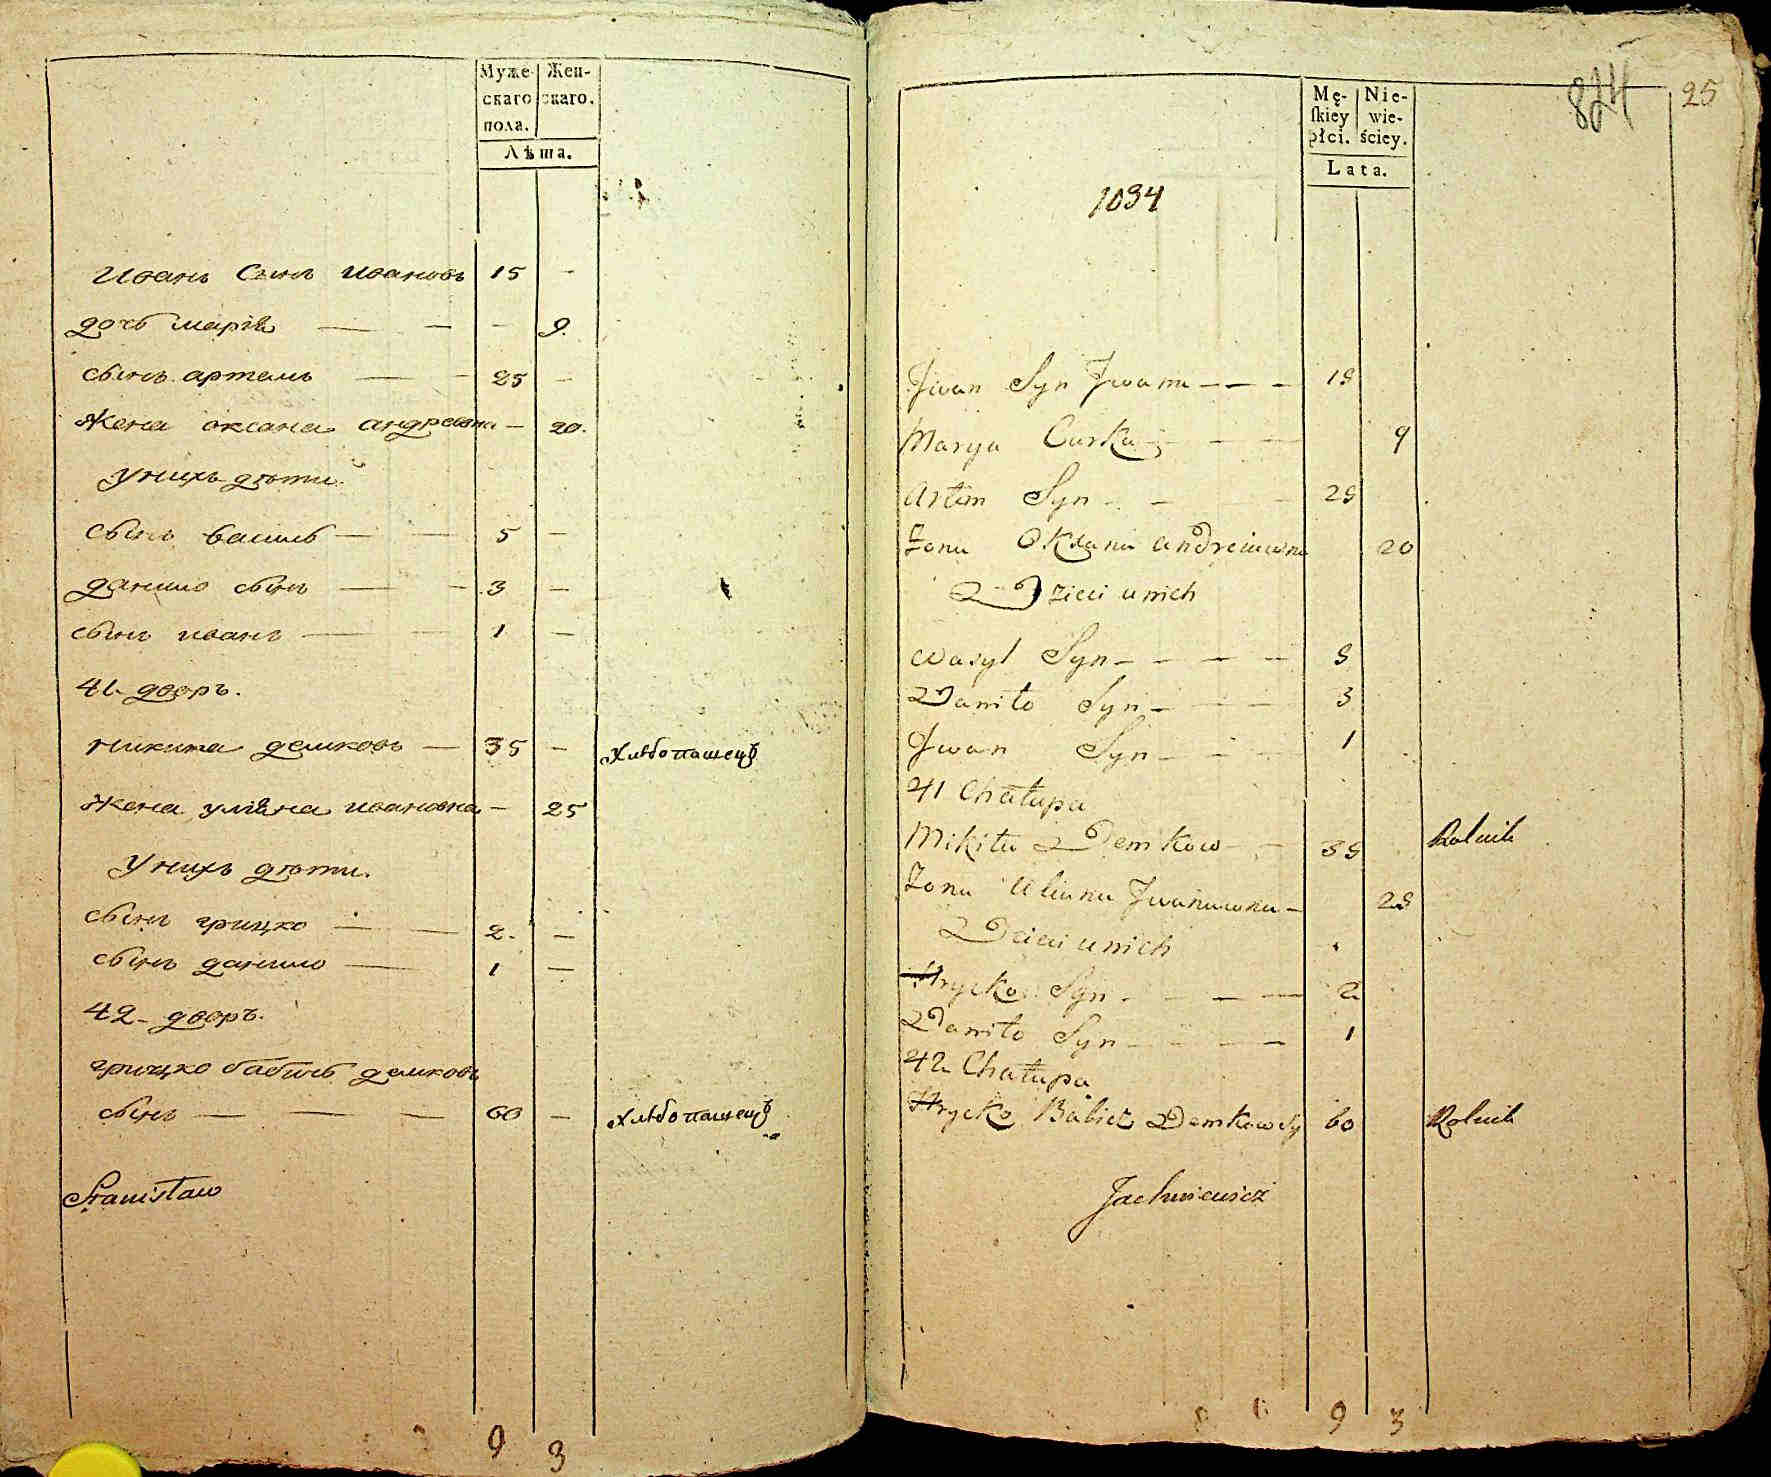 Муже- Жен-
скаго скаго.
пола.
Лѣта.
Иванъ Сынъ ивановъ 15 -
дочь марія — - - 9.
сынъ артемъ — - 25 -
Жена оксана андреевна - 20.
у нихъ дѣти.
сынъ василь — - 5 -
данило сынъ — - 3 -
сынъ иванъ — - 1 -
41 дворъ.
никита демковъ - 35 - Хлѣбопашецъ
жена уліяна ивановна - 25
у нихъ дѣти.
сынъ грицко - - 2. -
сынъ данило — 1 -
42 - дворъ.
грицко бабичъ демковъ
сынъ — - - 60 - Хлѣбопашецъ
Stanisław
9 3
824 25
Mę- Nie-
ſkiey wie-
płci. ściey.
Lata.
1034
Jwan Syn Jwana - - - 15
Marya Curka - - - 9
Artem Syn - - - 25
Żona Oksana Andreiewna 20
Dzieci u nich
Wasyl Syn - - - - 5
Daniło Syn - - - 3
Jwan Syn - - - 1
41 Chałupa
Mikita Demkow - - 35 Rolnik
Żona Uliana Jwanowna - 25
Dzieci u nich
Hrycko Syn - - - - 2
Daniło Syn - - - - 1
42 Chałupa
Hrycko Babicz Demkow Sy 60 Rolnik
Jachniewicz
9 3